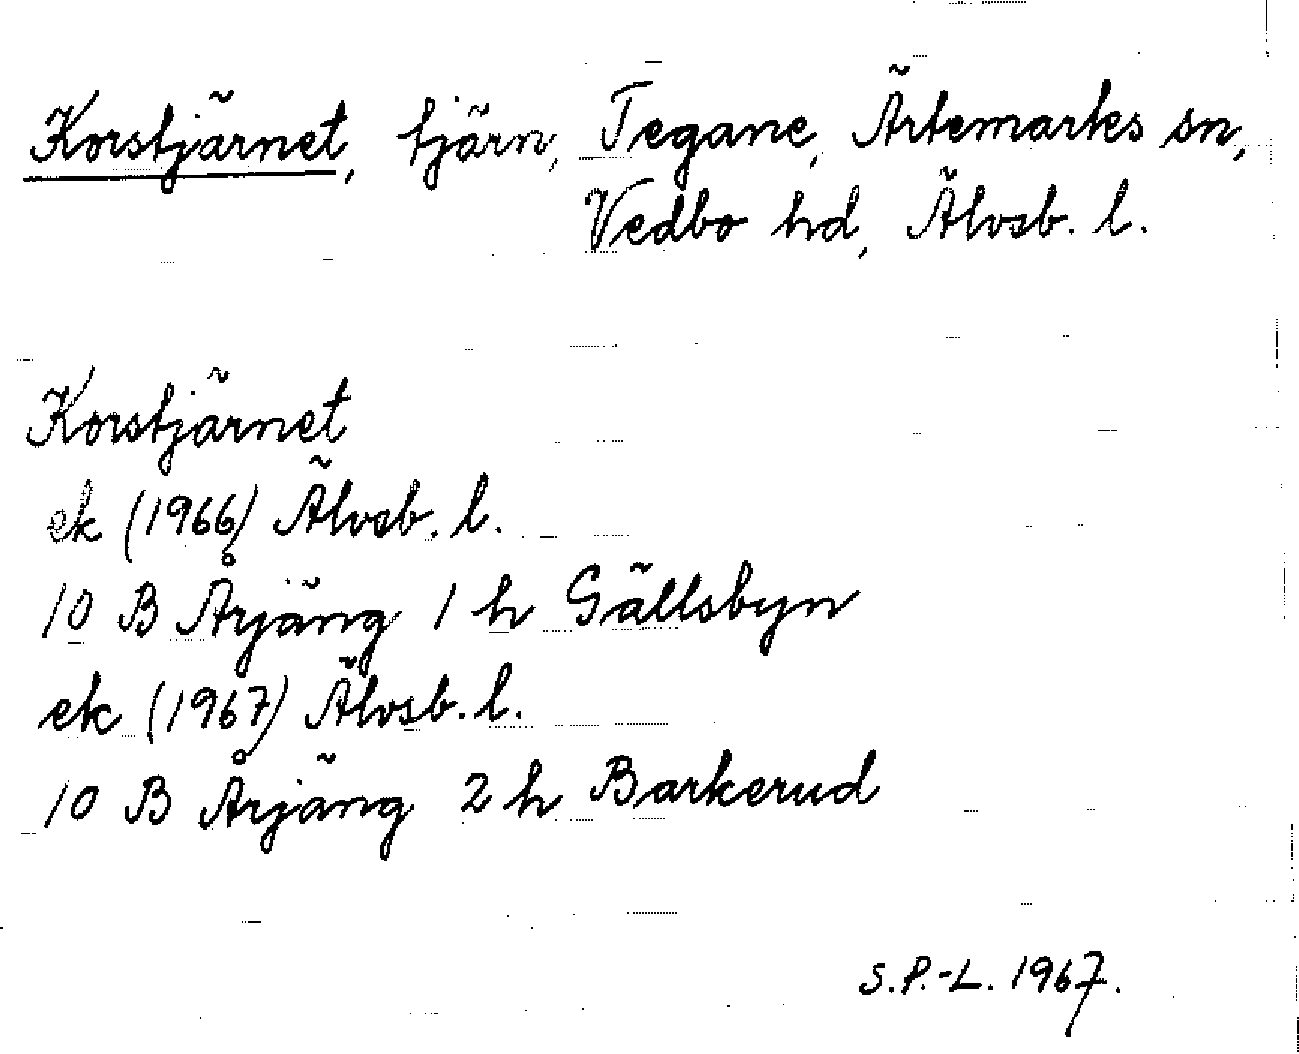 Korstjärnet, tjärn, Tegane, Ärtemarks sn,
Vedbo hd, Älvsb. l.
Korstjärnet
ek (1966) Älvsb. l.
10 B Årjäng 1 h Gällsbyn
ek (1967) Älvsb. l.
10 B Årjäng 2 h Barkerud
S.P.-L. 1967.